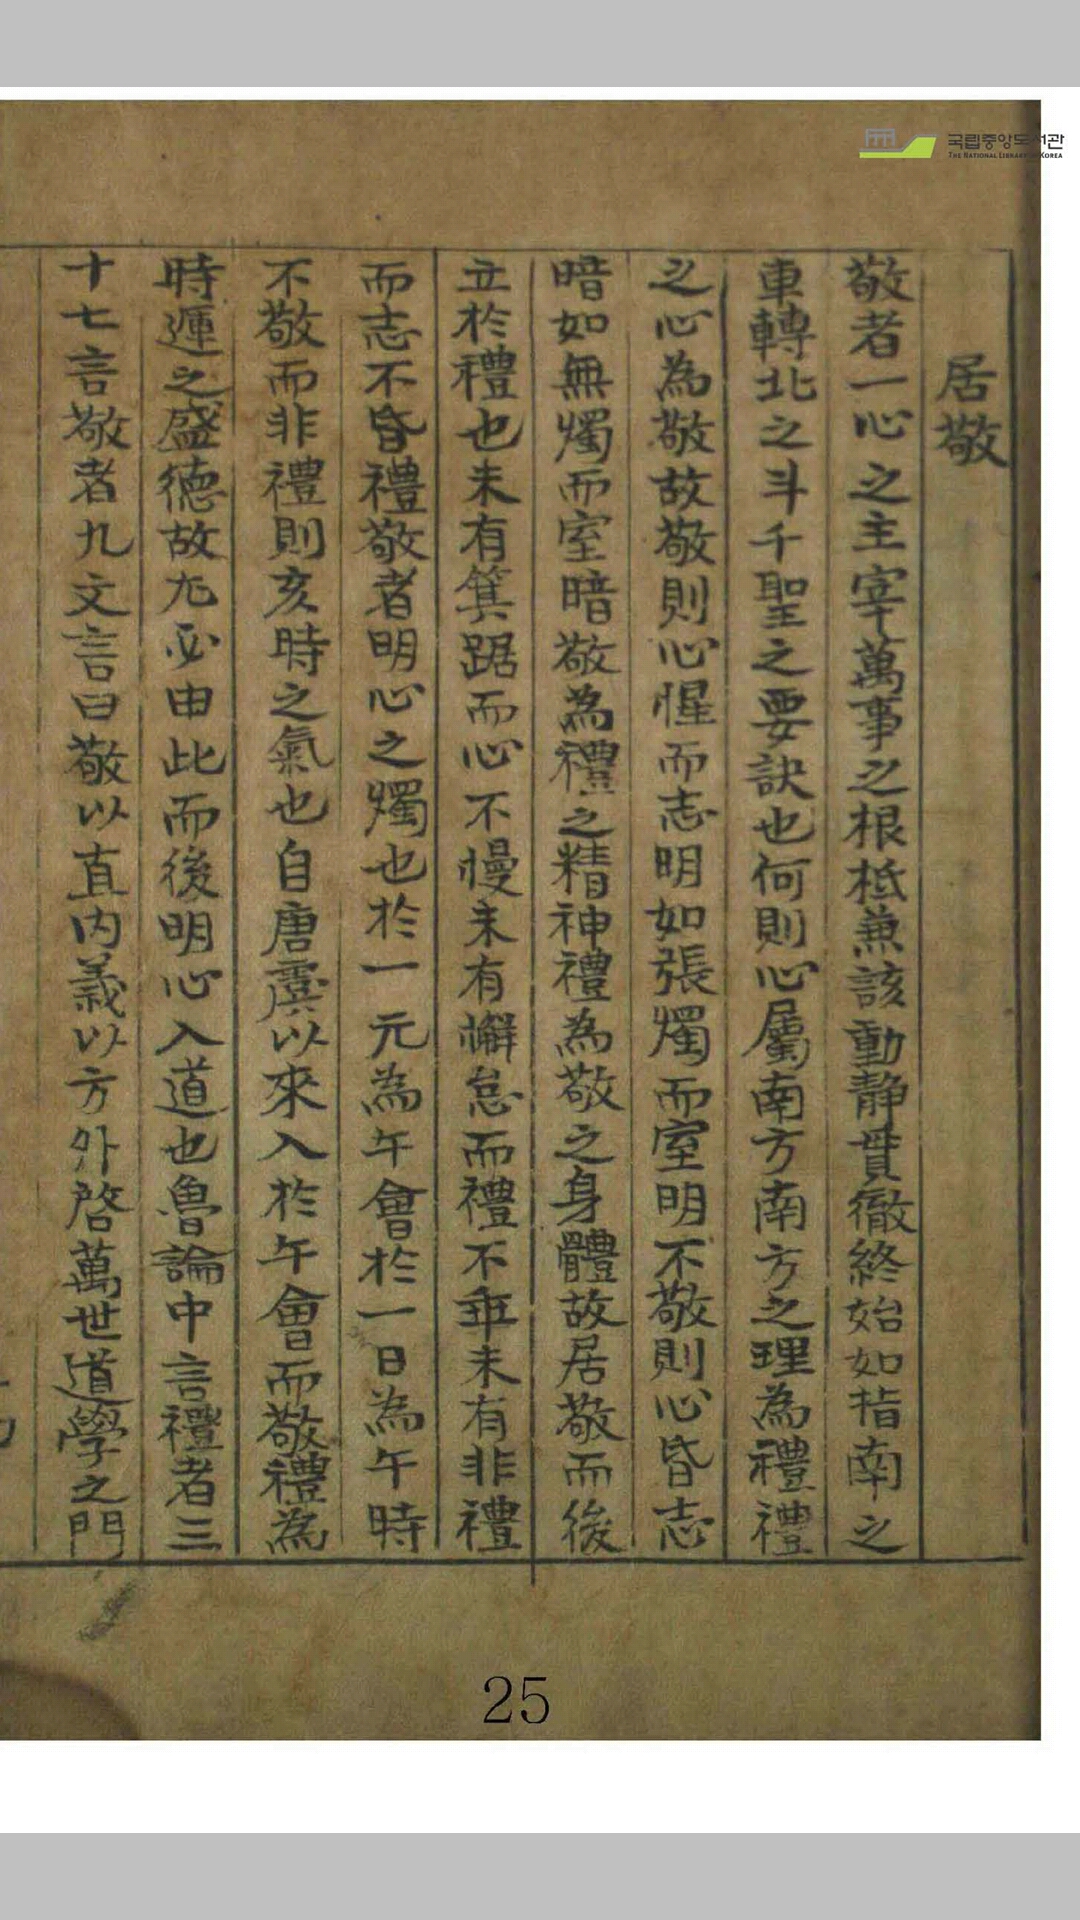 국립중앙도서관
THE NATIONAL LIBRARY OF KOREA
居敬
敬者一心之主宰萬事之根柢兼該動靜貫徹終始如指南之
車轉北之斗千聖之要訣也何則心屬南方南方之理為禮禮
之心為敬故敬則心惺而志明如張燭而室明不敬則心昏志
暗如無燭而室暗敬為禮之精神禮為敬之身體故居敬而後
立於禮也未有箕踞而心不慢未有懈怠而禮不乖未有非禮
而志不昏禮敬者明心之燭也於一元為午會於一日為午時
不敬而非禮則亥時之氣也自唐虞以來入於午會而敬禮為
時運之盛德故尤必由此而後明心入道也魯論中言禮者三
十七言敬者九文言曰敬以直內義以方外啓萬世道學之門
25